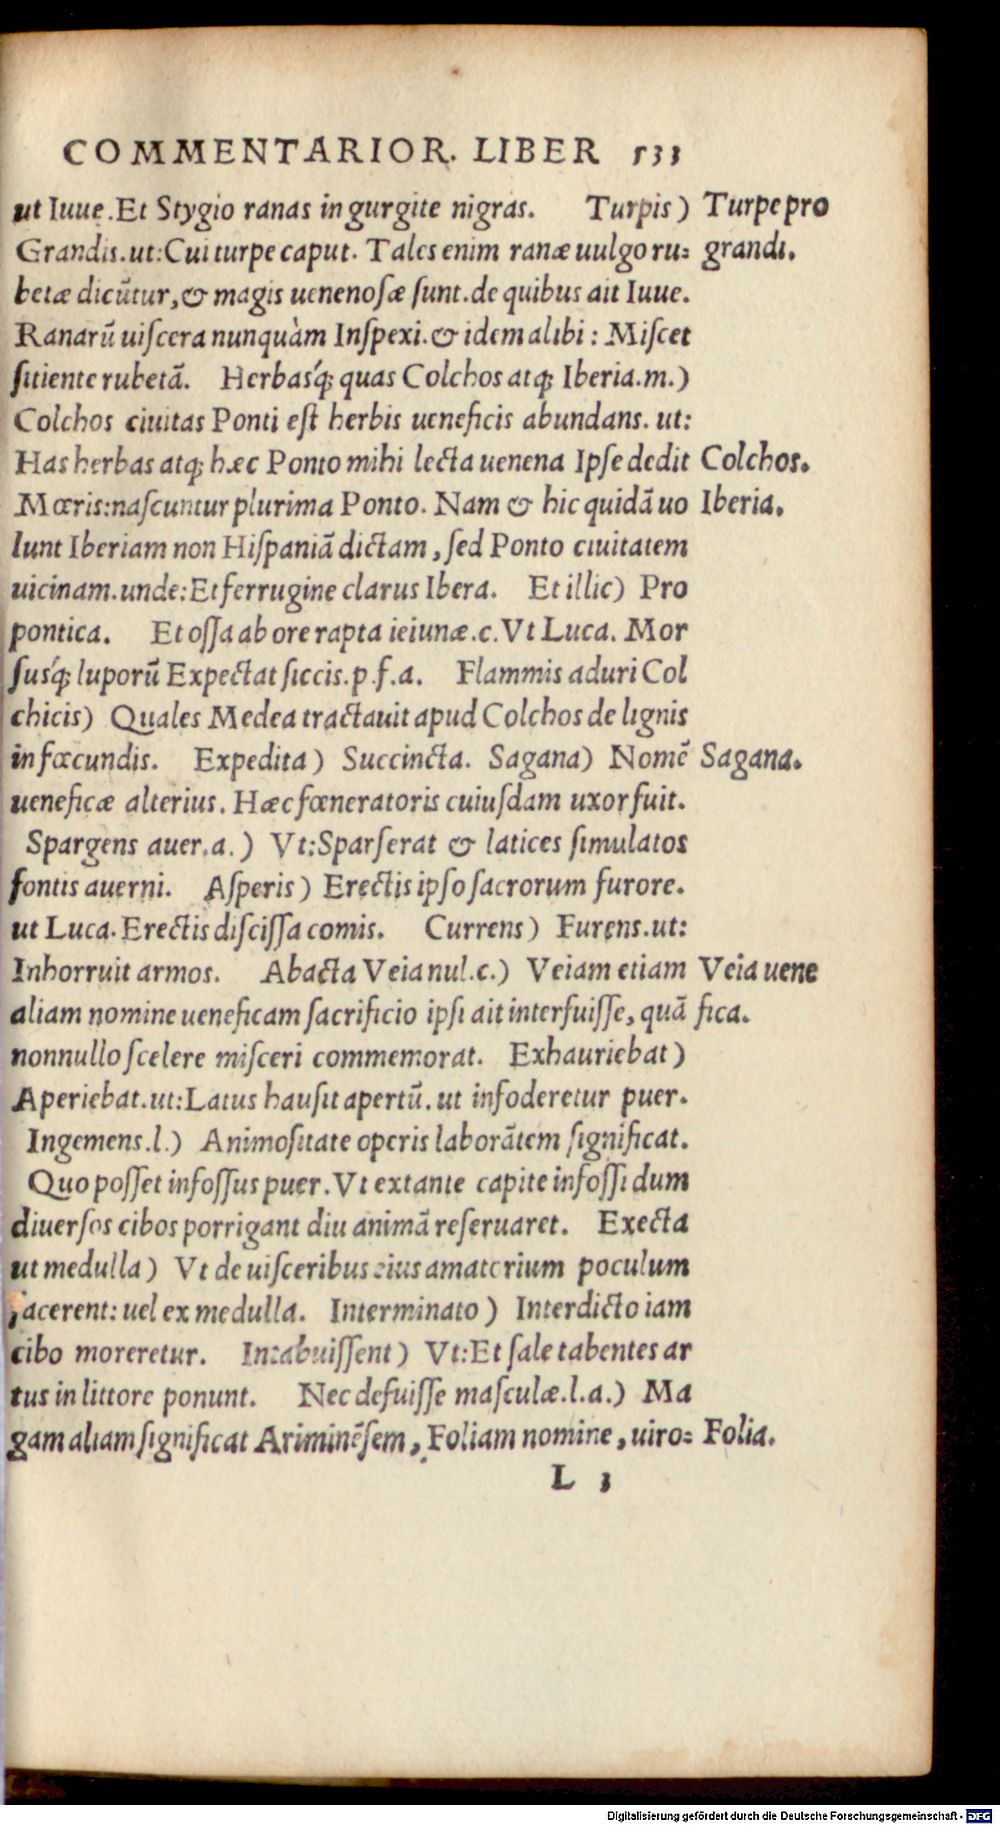 COMMENTARIOR. LIBER 533
ut Iuue. Et Stygio ranas in gurgite nigras. Turpis) Turpe pro
Grandis. ut: Cui turpe caput. Tales enim ranæ uulgo ru= grandi.
betæ dicũtur, & magis uenenosæ sunt. de quibus ait Iuue.
Ranarũ uiscera nunquàm Inspexi. & idem alibi: Miscet
sitiente rubetã. Herbasq́; quas Colchos atq; Iberia.m.)
Colchos ciuitas Ponti est herbis ueneficis abundans. ut:
Has herbas atq; hæc Ponto mihi lecta uenena Ipse dedit Colchos.
Mœris: nascuntur plurima Ponto. Nam & hic quidã uo Iberia.
lunt Iberiam non Hispaniã dictam, sed Ponto ciuitatem
uicinam. unde: Et ferrugine clarus Ibera. Et illic) Pro
pontica. Et ossa ab ore rapta ieiunæ.c. Vt Luca. Mor
susq́; luporũ Expectat siccis.p.f.a. Flammis aduri Col
chicis) Quales Medea tractauit apud Colchos de lignis
infœcundis. Expedita) Succincta. Sagana) Nomẽ Sagana.
ueneficæ alterius. Hæc fœneratoris cuiusdam uxor fuit.
Spargens auer.a.) Vt: Sparserat & latices simulatos
fontis auerni. Asperis) Erectis ipso sacrorum furore.
ut Luca. Erectis discissa comis. Currens) Furens. ut:
Inhorruit armos. Abacta Veia nul.c.) Veiam etiam Veia uene
aliam nomine ueneficam sacrificio ipsi ait interfuisse, quã fica.
nonnullo scelere misceri commemorat. Exhauriebat)
Aperiebat. ut: Latus hausit apertũ. ut infoderetur puer.
Ingemens.l.) Animositate operis laborãtem significat.
Quo posset infossus puer. Vt extante capite infossi dum
diuersos cibos porrigant diu animã reseruaret. Execta
ut medulla) Vt de uisceribus eius amatorium poculum
facerent: uel ex medulla. Interminato) Interdicto iam
cibo moreretur. Intabuissent) Vt: Et sale tabentes ar
tus in littore ponunt. Nec defuisse masculæ.l.a.) Ma
gam aliam significat Ariminẽsem, Foliam nomine, uiro= Folia.
L 3
Digitalisierung gefördert durch die Deutsche Forschungsgemeinschaft - DFG